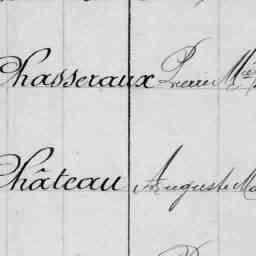 Chasseraux Pierre
Château Auguste